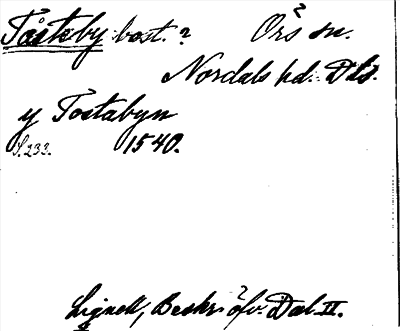 Tåsteby bost.? Örs sn.
Nordals hd. Dls.
y Tostabyn
S. 233. 1540.
Lignell, Beskr. öfv. Dal. II.